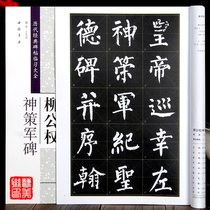 历代经典碑帖临习大全
柳公权
神策军碑
皇帝巡幸左
神策軍紀聖
德碑并序翰